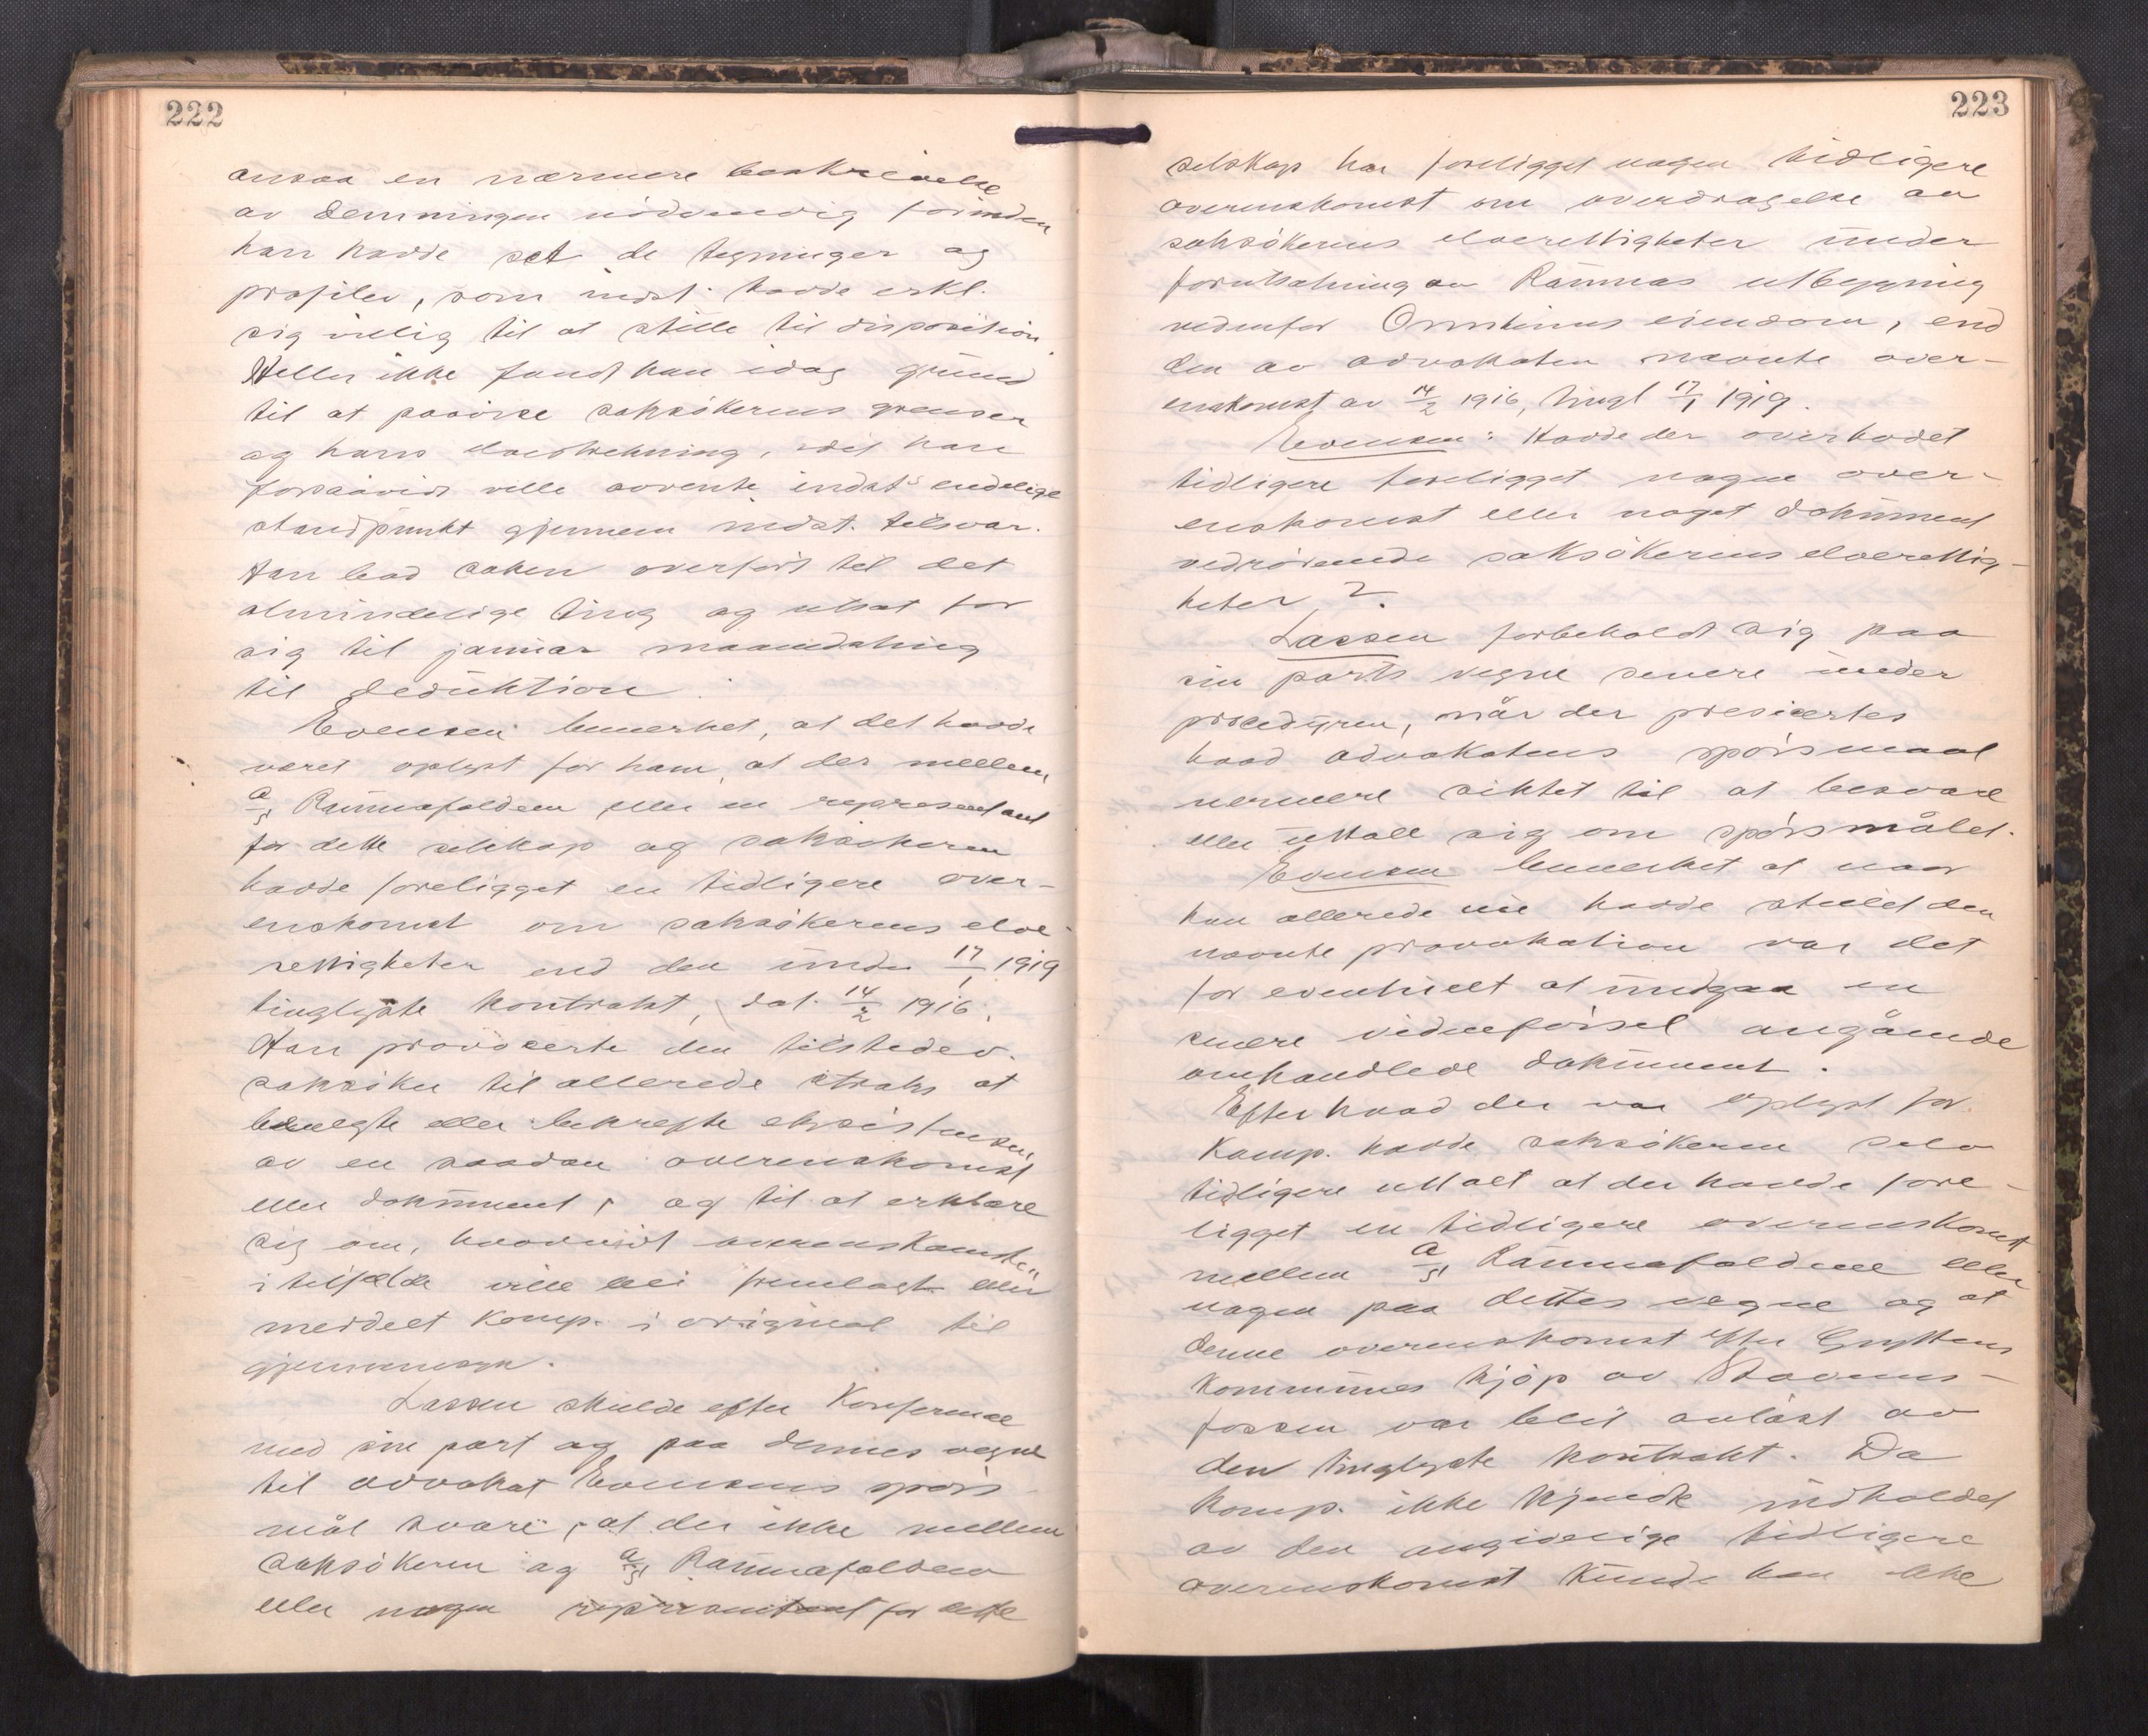 222
ansaa en nærmere beskrivelse
av demningen nödvendig forinden
han havde set de tegninger og
profiler, som indst. havde erkl.
sig villig til at stille til disposition.
Heller ikke fandt han idag grund
til at paavise saksökerens grenser
og hans elvestrekning, idet han
forsaavidt ville avvente indst.s endelige
standpunkt gjennem indst. tilsvar.
Han bad saken overført til det
almindelige ting og utsat for
sig til januar maanedsting
til deduktion.
Evensen bemerket, at det havde
været oplyst for ham, at der mellem
A/S Raumafaldene eller en representant
for dette selskap og saksökeren
havde foreligget en tidligere over-
enskomst om saksökerens elve-
rettigheter end den under 17/1 1919
tinglyste kontrakt, dat. 14/2 1916.
Han provocerte den tilstedev.
saksöker til allerede straks at
benegte eller bekrefte eksistensen
av en saadan overenskomst
eller dokument, og til at erklære
sig om, hvorvidt overenskomsten
i tilfælde ville bli fremlagt eller
meddelt komp. i original til
gjennemsyn.
Lassen skulde efter Konferense
med sin part og paa dennes vegne
til advokat Evensens spörs-
mål svare, at der ikke mellem
saksökeren og A/S Raumafaldene
eller nogen representant for dette
223
selskap har foreligget nogen tidligere
overenskomst om overdragelse av
saksökerens elverettigheter under
forutsætning av Raumas utbygning
nedenfor Ormheims eiendom, end
den av advokaten nævnte over-
enskomst av 14/2 1916, tingl 17/1 1919.
Evensen: Havde der overhodet
tidligere foreligget nogen over-
enskomst eller noget dokument
vedrörende saksökerens elverettig-
heter?
Lassen forbeholdt sig paa
sin parts vegne senere under
proceduren, når der presicertes
hvad advokatens spörsmaal
nermere siktet til at besvare
eller uttale sig om spörsmålet.
Evensen bemerket at naar
han allerede nu havde stillet den
nævnte provokation var det
for eventuelt at undgaa en
senere vidneförsel angående
omhandlede dokument.
Efter hvad der var oplyst for
Komp. havde saksökeren selv
tidligere uttalt at der havde fore-
ligget en tidligere overenskomst
mellem A/S Raumafaldene eller
nogen paa dettes vegne og at
denne overenskomst efter Gryttens
kommunes kjöp av Stavens-
fossen var blit avlöst av
den tinglyste kontrakt. Da
Komp. ikke kjendte indholdet
av den angivelige tidligere
overenskomst kunde han ikke